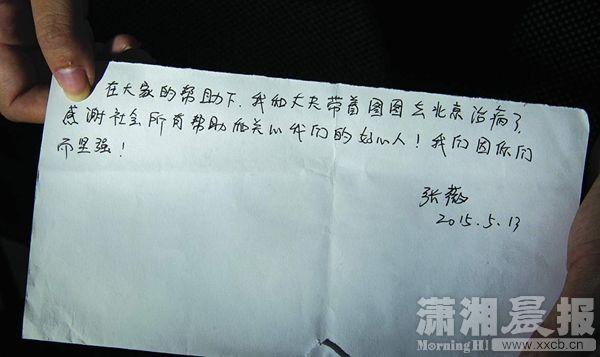 在大家的帮助下，我和大夫带着图图去北京治病了，
感谢社会所有帮助和关心我们的好心人！我们因你们
而坚强！
张薇
2015.5.13
潇湘晨报
Morning H!
www.xxcb.cn